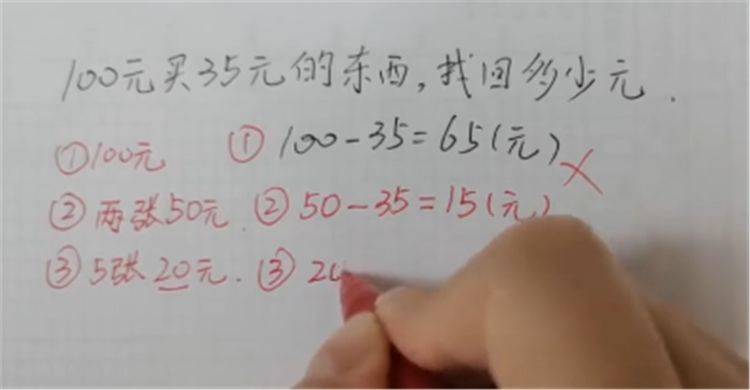 100元买35元的东西,找回多少元.
①100元 ①100-35=65(元)
②两张50元. ②50-35=15(元)
③5张20元. ③20